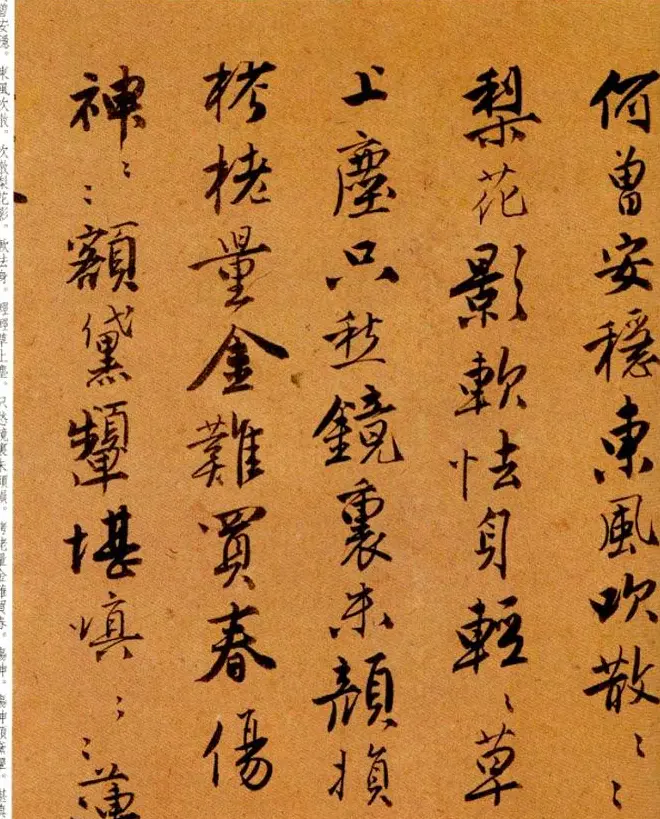 何曾安穩東風吹散〻〻
梨花影軟怯身輕〻〻草
上塵只愁鏡裏朱顏損
栲栳量金難買春傷
神〻〻額黛顰堪慎〻〻
曾安穩。東風吹散。吹散梨花影。軟怯身。輕輕草上塵。只愁鏡裏朱顏損。栲栳量金難買春。傷神。傷神額黛顰。